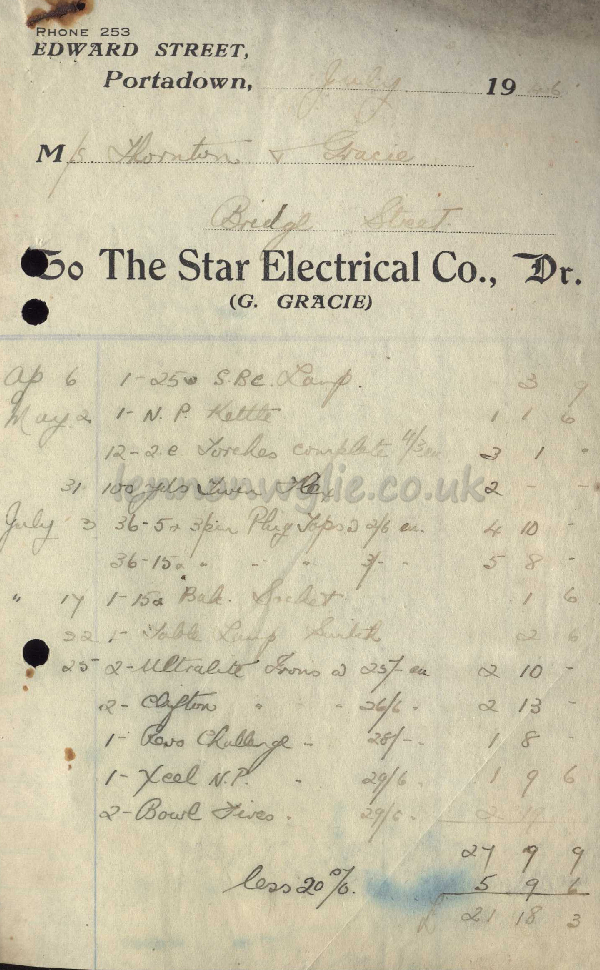 PHONE 253
EDWARD STREET,
Portadown, July 1946
M/s. Thornton & Gracie
Bridge Street.
To The Star Electrical Co., Dr.
(G. GRACIE)
Ap 6 1-25w S.B.C. Lamp. 3 9
May 2 1-N.P. Kettle 1 1 6
12-2c Torches complete 3 1 "
31 100 yds Twin Flex 2 - -
July 3 36-5a 3pin Plug Tops @ 2/6 ea. 4 10 -
36-15a " " " 3/- 5 8 -
" 17 1-15a Bak. Socket 1 6
22 1- Table Lamp Switch 2 6
25 2-Ultralite Irons @ 25/- ea 2 10 -
2- Clifton " " 26/6 " 2 13 -
1- Revo Challenge - 28/- - 1 8 -
1- Xcel N.P. " 29/6 1 9 6
2- Bowl Fires. 29/6 - 2 19
27 9 9
less 20%. 5 9 6
£ 21 18 3
lennonwylie.co.uk